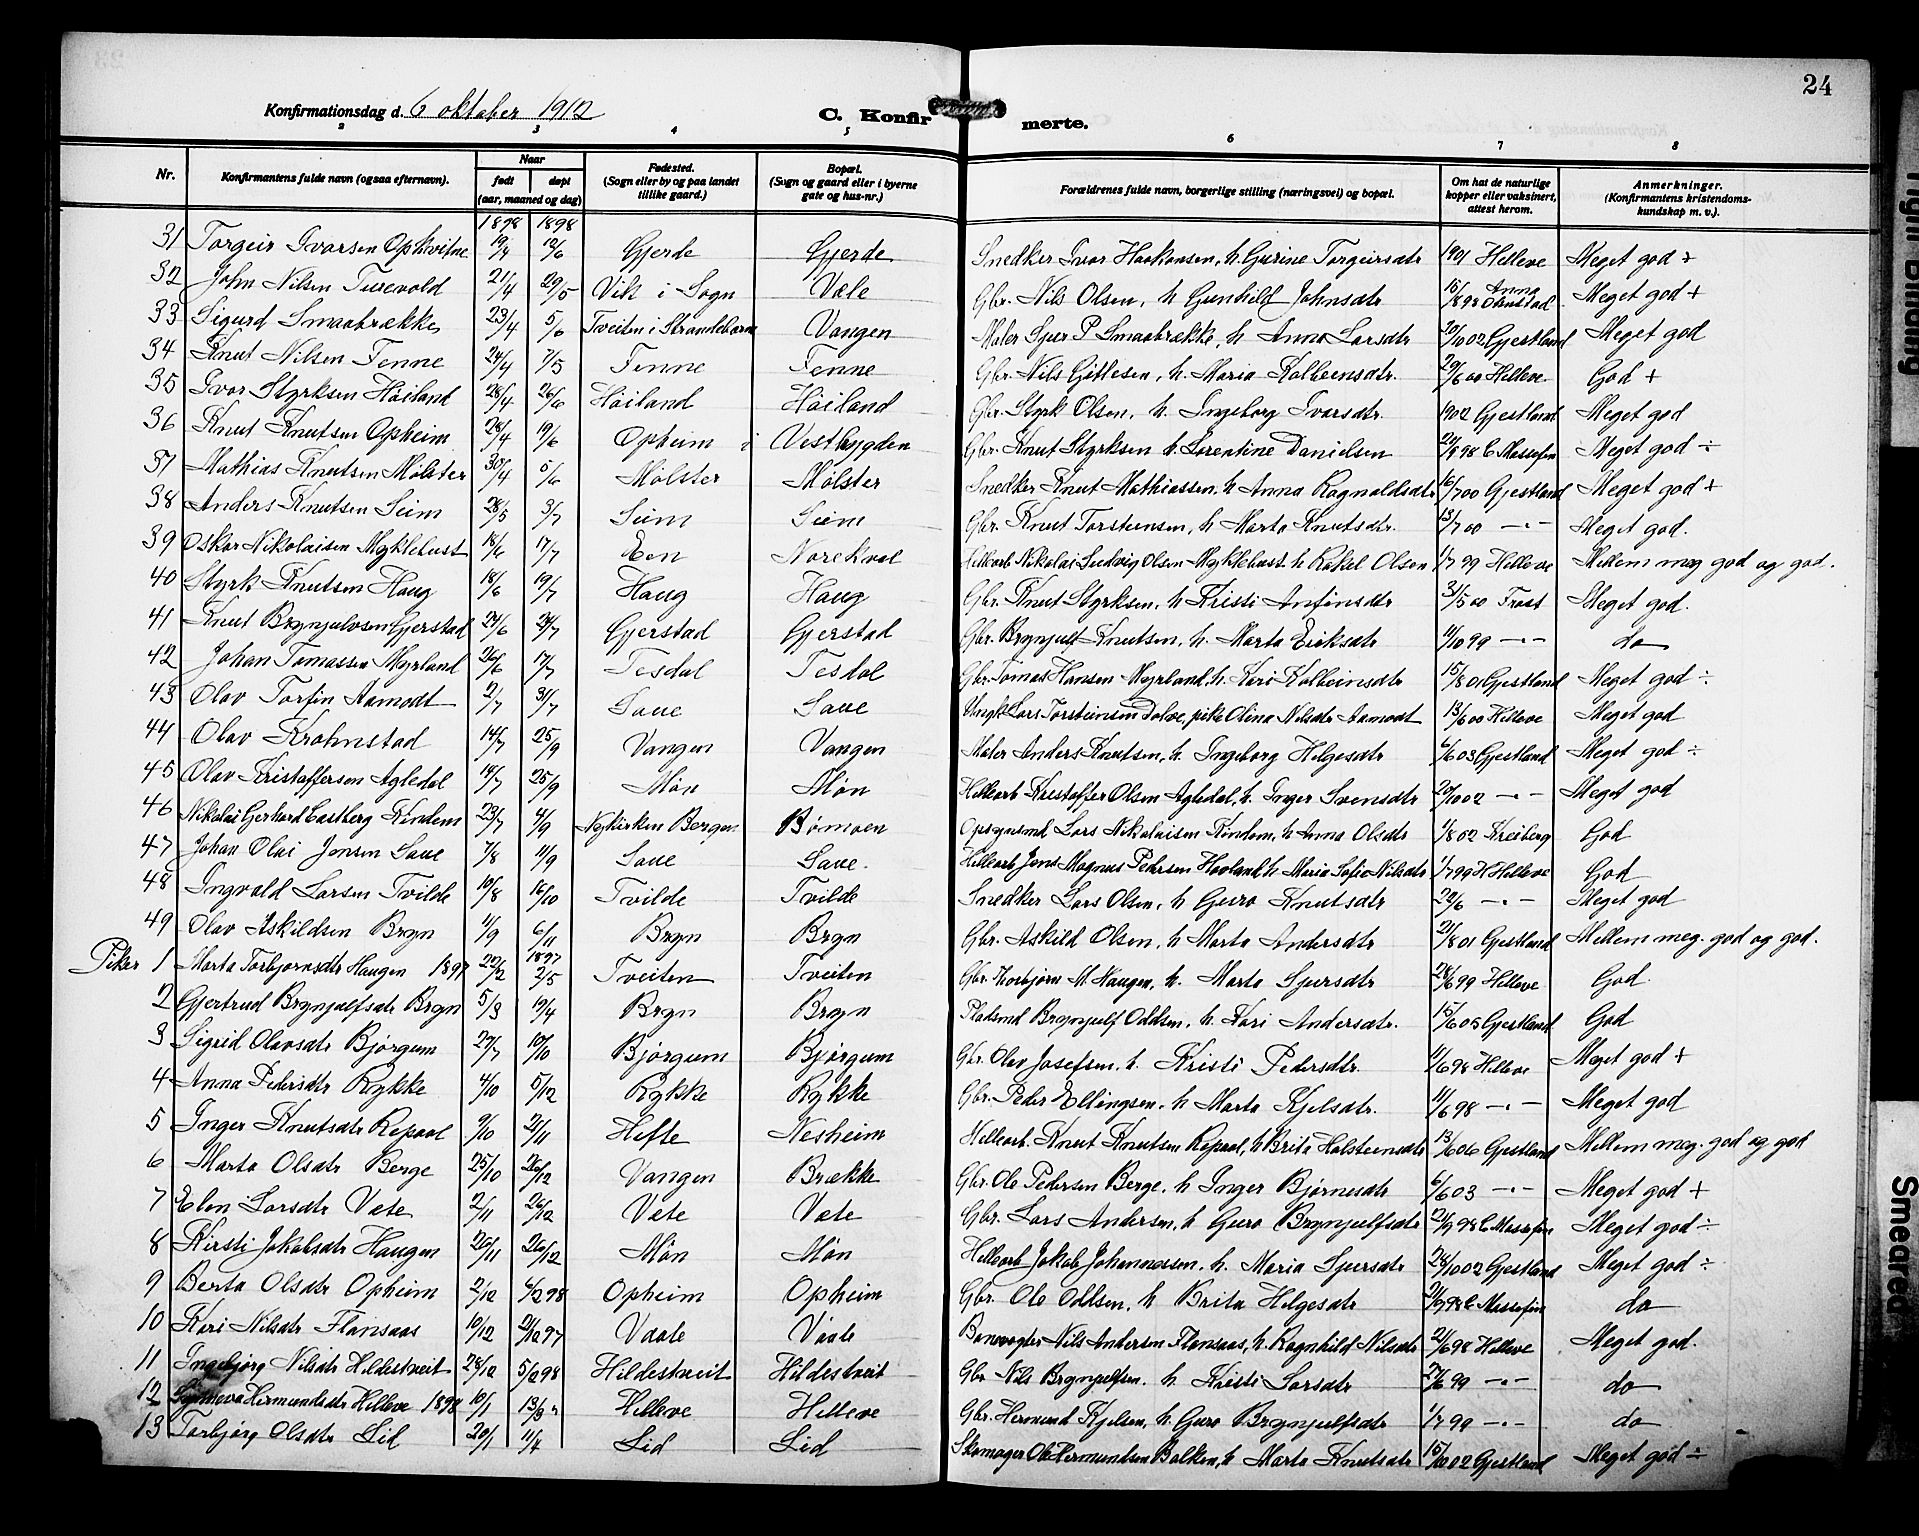 24
Konfirmationsdag d. 6 oktober 1912
C. Konfirmerte.
2 3 4 5 6 7 8
Nr.
Konfirmantens fulde navn (ogsaa efternavn).
Naar
født døpt
(aar, maaned og dag)
Fødested.
(Sogn eller by og paa landet
tillike gaard.)
Bopæl.
(Sogn og gaard eller i byerne
gate og hus-nr.)
Forældrenes fulde navn, borgerlige stilling (næringsvei) og bopæl.
Om hat de naturlige
kopper eller vaksinert,
attest herom.
Anmerkninger.
(Konfirmantens kristendoms-
kundskap m. v.).
1898 1898
31 Torgeir Ivarsen Ophvitne 19/4 12/6 Gjerde Gjerde Snedker Ivar Haakonsen, h. Gurine Torgeirsdtr 1901 Helleve Meget god ÷
32 John Nilsen 21/4 29/5 Vik i Sogn Væte Gbr. Nils Olsen, h Gunhild Johnsdtr 16/8 98 Anna Meget god +
33 Sigurd Smaabrække 23/4 5/6 Tveiten i Strandebarm Vangen Maler Sjur P Smaabrække, h Anna Larsdtr 20/10 02 Gjestland Meget god
34 Knut Nilsen Tenne 24/4 7/5 Tenne Tenne Gbr. Nils Gitlesen, h. Maria Kolbeinsdtr. 29/6 00 Helleve God +
35 Ivar Styrksen Høiland 28/4 26/6 Høiland Høiland Gbr. Styrk Olsen, h. Ingeborg Ivarsdtr. 1902 Gjestland Meget god
36 Knut Knutsen Opheim 28/4 19/6 Opheim i Vestbygden Gbr. Knut Styrksen h. Lorentine Danielsen 98 C Meget god ÷
37 Mathias Knutsen Mølster 30/4 5/6 Mølster Mølster Snedker Knut Mathiassen, h. Anna Ragnaldsdtr 16/7 00 Gjestland Meget god +
38 Anders Knutsen Seim 28/5 3/7 Seim Seim Gbr. Knut Torsteinsen, h Marta Knutsdtr. 13/7 00 -"- Meget god.
39 Oskar Nikolaisen Myklebust 18/6 17/7 Een Norekval Hellearb. Nikolai Ludvig Olsen Myklebust h Rakel Olsen 1/7 99 Helleve Mellem meg god og god.
40 Styrk Knutsen Haug 18/6 19/7 Haug Haug Gbr. Knut Styrksen, h Kristi Anfinsdtr 31/5 00 Trost Meget god.
41 Knut Brynjulvsen Gjerstad 24/6 24/7 Gjerstad Gjerstad Gbr. Brynjulf Knutsen, h. Marta Eriksdtr 11/10 99 -"- do
42 Johan Tomassen Myrland 26/6 17/7 Tesdal Tesdal Gbr. Tomas Hansen Myrland, h. Kari Kolbeinsdtr 15/8 01 Gjestland Meget god ÷
43 Olav Torfin Aamodt 2/7 31/7 Saue Saue Ungk Lars Torsteinsen Dolve, pike Olina Nilsdtr Aamodt 13/6 00 Helleve Meget god
44 Olav Krohnstad 14/7 25/9 Vangen Vangen Maler Anders Knutsen, h. Ingeborg Helgesdtr 6/6 03 Gjestland Meget god ÷
45 Olav Kristoffersen Agledal 14/7 25/9 Møn Møn Hellearb Kristoffer Olsen Agledal, h. Inger Svensdtr 20/10 02 -"- Meget god
46 Nikolai Gerhard Castberg Kindem 23/7 4/9 Nykirken Bergen Bømoen Opsynsmd Lars Nikolaisen Kindem, h Anna Olsdtr 1/8 02 Kreiberg God
47 Johan Olai Jensen Saue 7/8 11/9 Saue Saue. Hellearb Jens Magnus Pedersen Havland, h Maria Sofie Nilsdtr 1/7 99 H Helleve God
48 Ingvald Larsen Tvilde 10/8 16/10 Tvilde Tvilde Snedker Lars Olsen, h Guro Knutsdtr 22/6 -"- Meget god
49 Olav Askildsen Bryn 11/9 6/11 Bryn Bryn Gbr. Askild Olsen, h Marta Andersdtr 21/8 01 Gjestland Mellem meg. god og god.
Piker 1 Marta Torbjørnsdtr Haugen 1897 22/2 1897 2/5 Tveiten Tveiten Gbr. Torbjørn M. Haugen, h. Marta Sjursdtr 28/6 99 Helleve God
2 Gjertrud Brynjulfsdtr Bryn 5/3 19/4 Bryn Bryn Pladsmd Brynjulf Oddsen, h. Kari Andersdtr. 15/6 05 Gjestland God
3 Sigrid Olavsdtr Bjørgum 27/7 10/10 Bjørgum Bjørgum Gbr. Olav Josefsen, h. Kristi Pedersdtr. 11/6 98 Helleve Meget god +
4 Anna Pedersdtr Rykke 4/10 5/12 Rykke Rykke Gbr. Peder Ellingsen, h Marta Kjelsdtr. 11/6 98 -"- Meget god
5 Inger Knutsdtr Repaal 9/10 21/11 Hefte Nesheim Hellearb. Knut Knutsen Repaal, h Brita Holsteinsdtr 13/6 06 Gjestland Mellem meg. god og god
6 Marta Olsdtr Berge 25/10 26/12 Vangen Brække Gbr. Ole Pedersen Berge, h Inger Bjørnesdtr 6/6 03 -"- Meget god +
7 Elen Larsdtr Væte 2/11 26/12 Væte Væte Gbr. Lars Andersen, h Guro Brynjulfsdtr 21/9 98 C Meget god ÷
8 Kirsti Jakobsdtr Haugen 20/11 26/12 Møn Møn Hellearb Jakob Johannessen, h. Maria Sjursdtr 28/10 02 Gjestland Meget god ÷
9 Berta Olsdtr Opheim 2/12 6/2 98 Opheim Opheim Gbr. Ole Oddsen, h Brita Helgesdtr 21/9 98 C do
10 Kari Nilsdtr Flansaas 10/12 21/12 97 Vaate Vaate Banevogter Nils Andersen Flansaas, h. Ragnhild Nilsdtr 21/6 98 Helleve Meget god.
11 Ingebjørg Nilsdtr Hildestveit 28/12 5/2 98 Hildestveit Hildestveit Gbr Nils Brynjulfsen, h Kristi Larsdtr 27/6 99 -"- do
12 Synneva Hermundsdtr Helleve 1898 10/1 13/3 Helleve Helleve Gbr. Hermund Kjelsen, h. Guro Brynjulfsdtr 1/7 99 -"- do
13 Torbjørg Olsdtr Lid 20/1 11/4 Lid Lid Skomager Ole Hermundsen Balken, h Marta Knutsdtr 15/10 02 Gjestland Meget god ÷
Tight Binding
Smeared